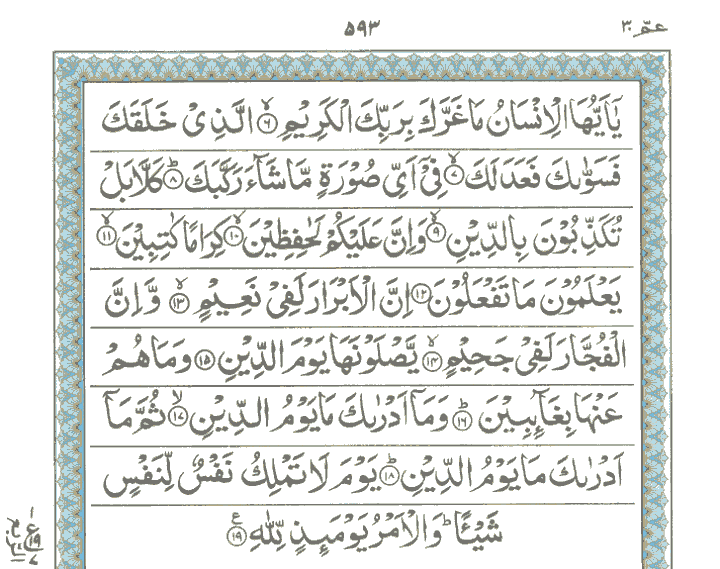 عمّ ٣٠
٥٩٣
يٰۤاَيُّهَا الْاِنْسَانُ مَا غَرَّكَ بِرَبِّكَ الْكَرِيْمِ ۙ‏﴿۶﴾ الَّذِىْ خَلَقَكَ
فَسَوّٰٮكَ فَعَدَلَكَ ۙ‏﴿۷﴾ فِىْۤ اَىِّ صُوْرَةٍ مَّا شَآءَ رَكَّبَكَ ؕ‏﴿۸﴾ كَلَّا بَلْ
تُكَذِّبُوْنَ بِالدِّيْنِ ۙ‏﴿۹﴾ وَاِنَّ عَلَيْكُمْ لَحٰفِظِيْنَ ۙ‏﴿۱۰﴾ كِرَامًا كٰتِبِيْنَ ۙ‏﴿۱۱﴾
يَعْلَمُوْنَ مَا تَفْعَلُوْنَ ‏﴿۱۲﴾ اِنَّ الْاَبْرَارَ لَفِىْ نَعِيْمٍ ۙ‏﴿۱۳﴾ وَّاِنَّ
الْفُجَّارَ لَفِىْ جَحِيْمٍ ۙ‏﴿۱۴﴾ يَّصْلَوْنَهَا يَوْمَ الدِّيْنِ ‏﴿۱۵﴾ وَمَا هُمْ
عَنْهَا بِغَآٮِٕبِيْنَ ؕ‏﴿۱۶﴾ وَمَاۤ اَدْرٰٮكَ مَا يَوْمُ الدِّيْنِ ۙ‏﴿۱۷﴾ ثُمَّ مَاۤ
اَدْرٰٮكَ مَا يَوْمُ الدِّيْنِ ؕ‏﴿۱۸﴾ يَوْمَ لَا تَمْلِكُ نَفْسٌ لِّنَفْسٍ
شَيْــًٔا ؕ وَالْاَمْرُ يَوْمَٮِٕذٍ لِّلّٰهِ ‏﴿۱۹﴾ ع